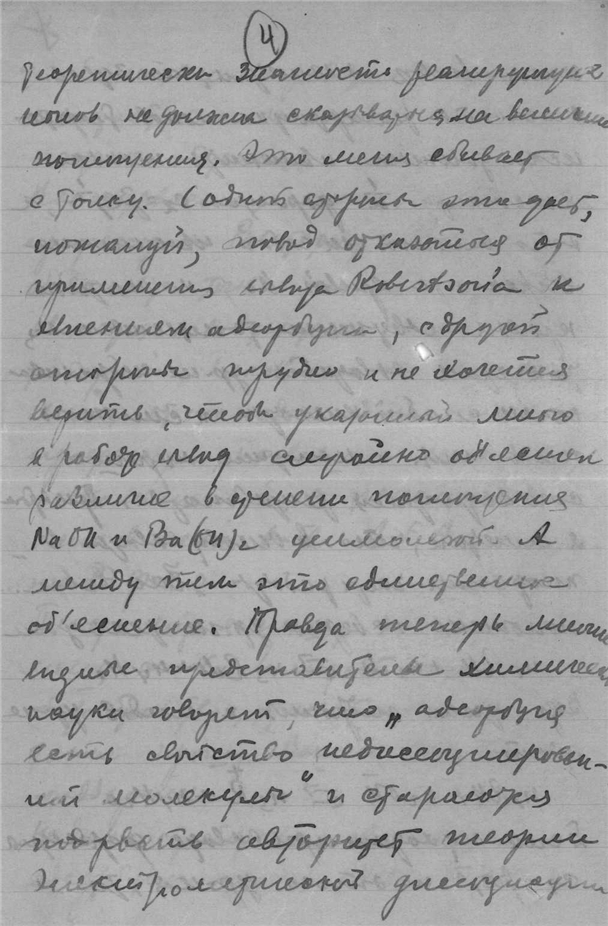 4
Теоретически значность реагирующих
ионов не должна сказываться на величине
поглощения. Это меня сбивает
с толку. С одной стороны это дает,
пожалуй, повод отказаться от
применения вывода Robertson'а к
явлениям адсорбции, с другой
стороны трудно и не хочется
верить, чтобы указанный мною
в работе вывод случайно об'яснял
различие в степени поглощения
NaOH и Ba(OH)2 целлюлозой А
между тем это единственное
об'яснение. Правда теперь многие
видные представители химической
науки говорят, что „адсорбция
есть свойство недиссоциирован-
ной молекулы" и стараются
подорвать авторитет теории
электролитической диссоциации